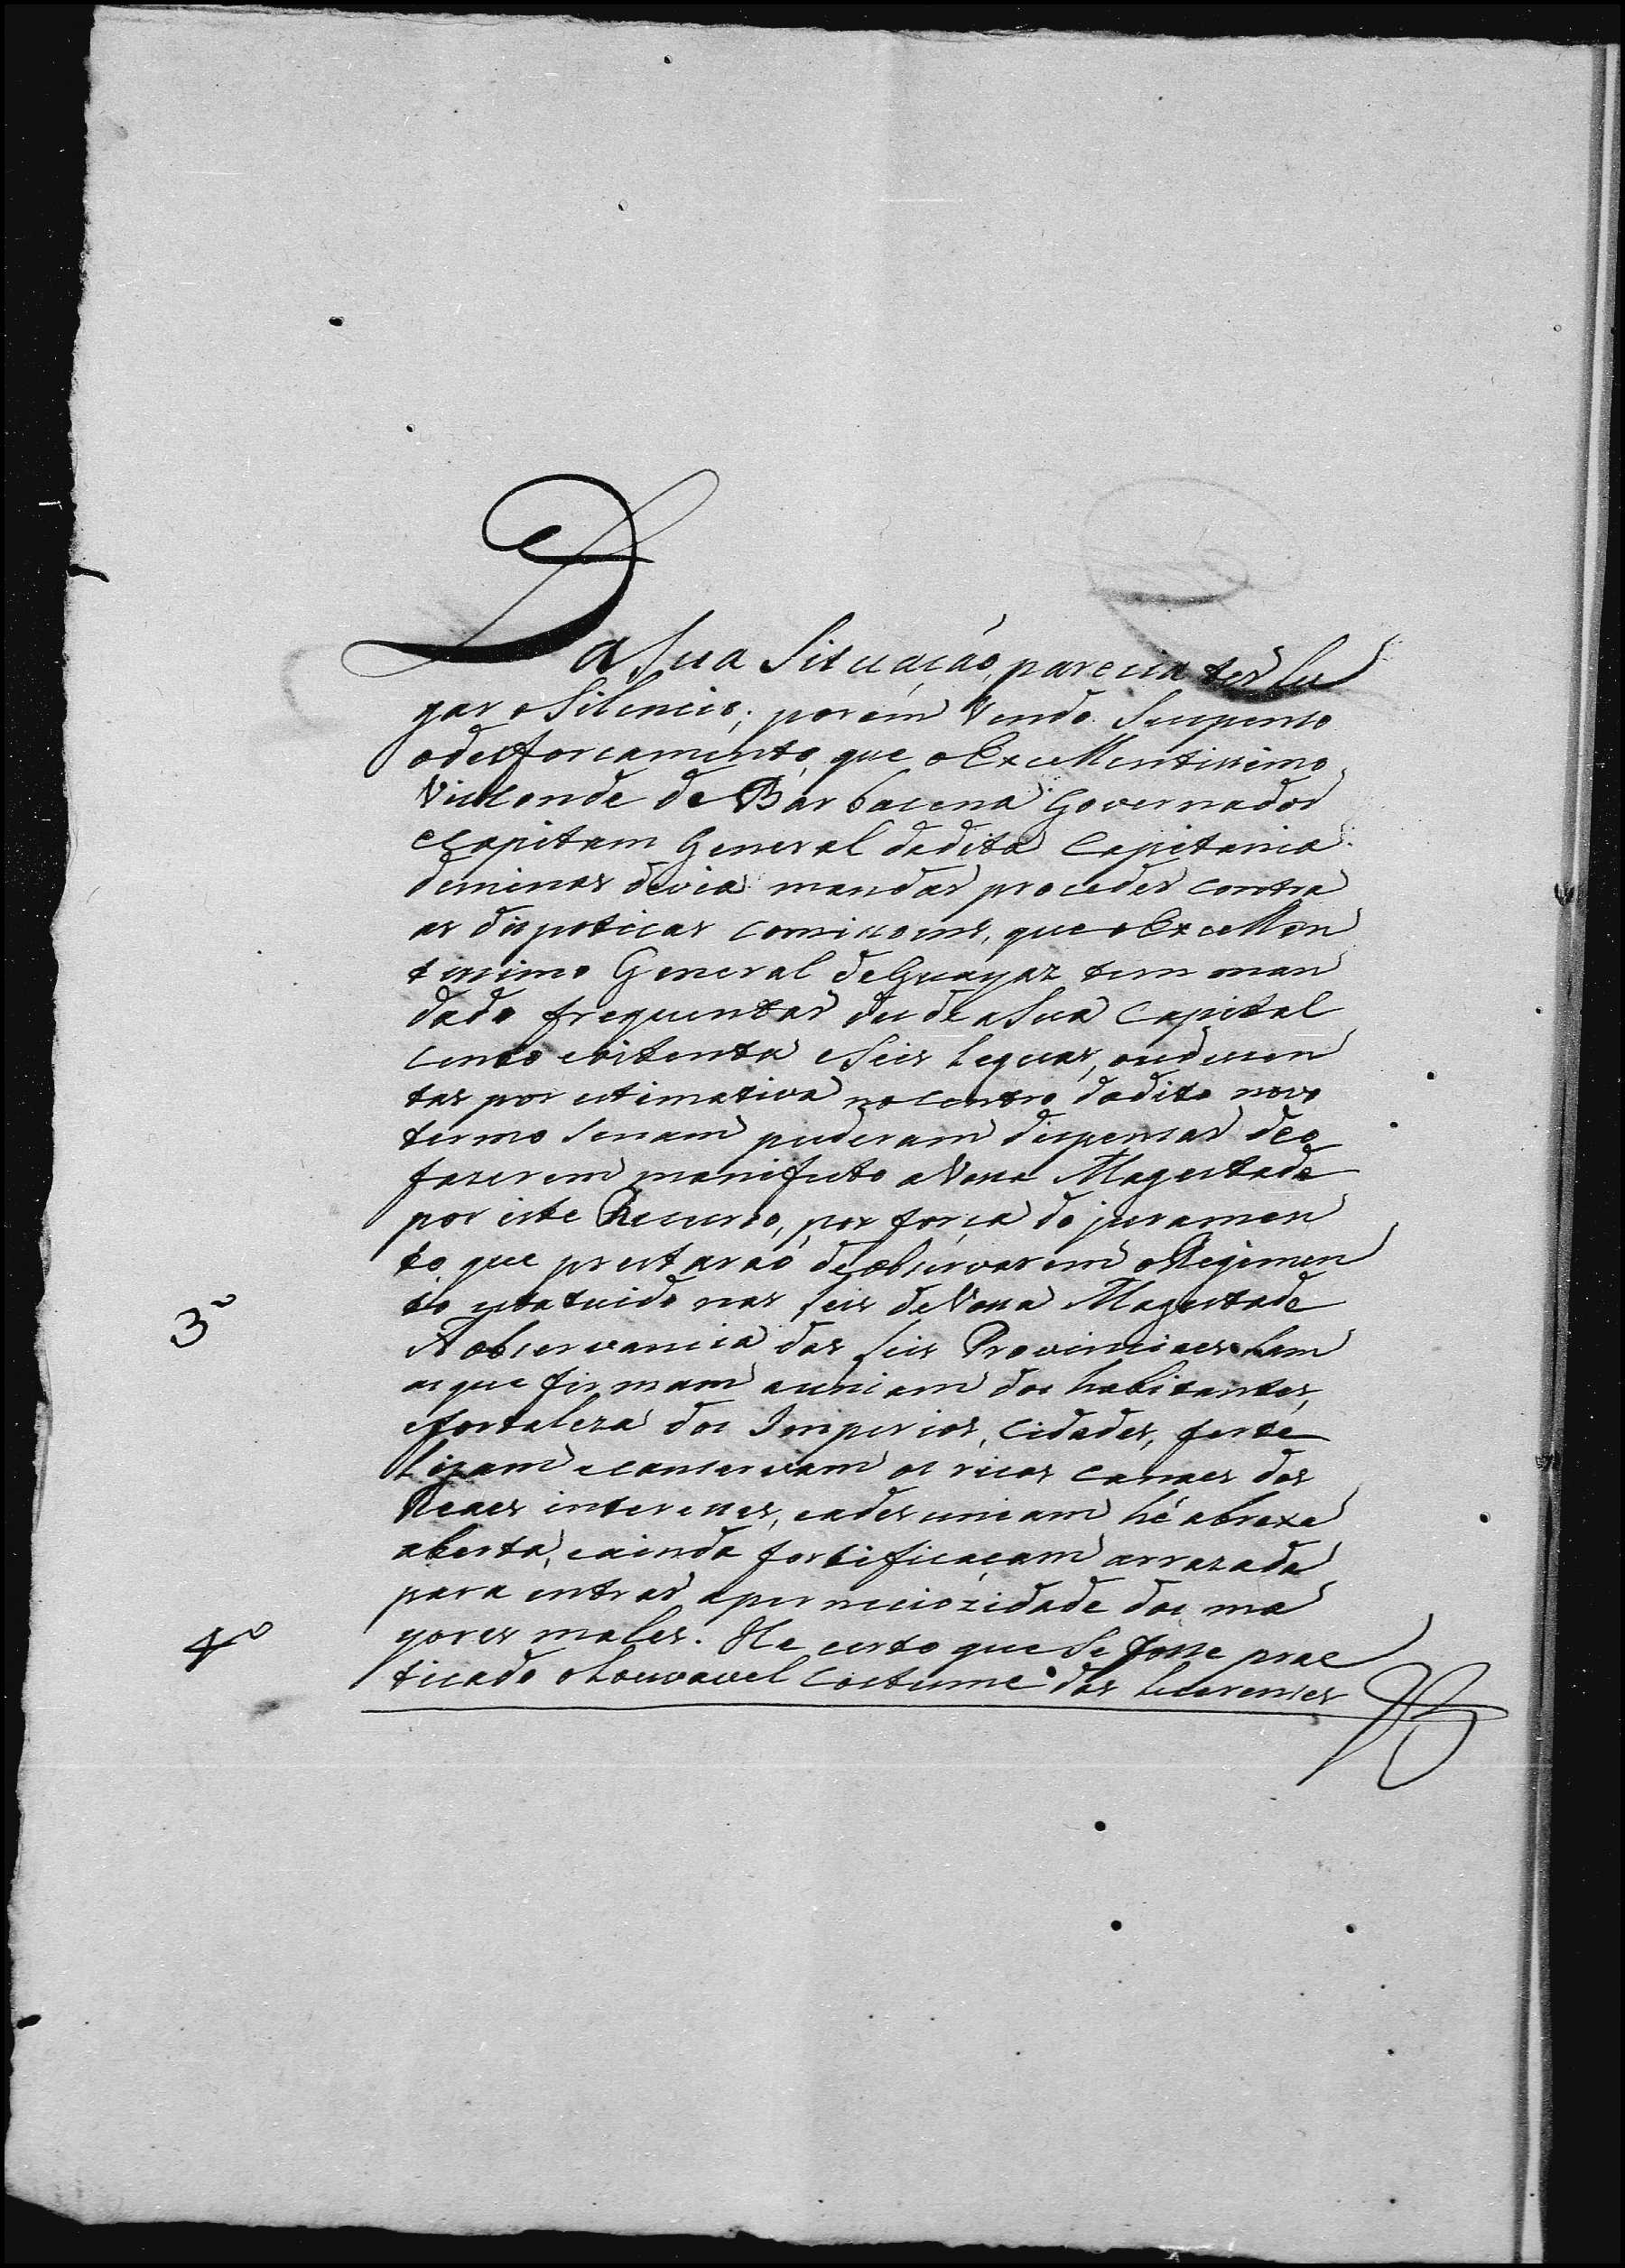 Da Sua Situaçáo, parecia ter lu
gar o Silencio; porém Vendo Suspenso
o desforcamento, que o Excellentissimo
Visconde de Barbacena Governador
e Capitam General da dita Capitania
de minas devia mandar proceder contra
as dispoticas comissoens, que o Excellen
tissimo General de Guayaz tem man
dado frequentar desde a Sua Capital
cento e oitenta e Seis Leguas, ou duzen
tas por estimativa no centro do dito novo
termo Senam puderam dispensar de o
fazerem manifesto a Vossa Magestade
por este Recurso, por força do juramen
to que prestaraó de observarem o Regimen
to estatuido nas Leis de Vossa Magestade
3º A observancia das Leis Provinciaes Sam
as que firmam a uniam dos habitantes,
e fortaleza dos Imperios, Cidades, ferte
lizam e conservam os ricos canaes dos
Reaes interesses, e a desuniam hé a brexa
aberta, e ainda fortificaçam arrazada
para entrar a perniciozidade dos ma
4º yores males. He certo que Se fosse prac
ticado o Louvavel Costume dos Lucrenses